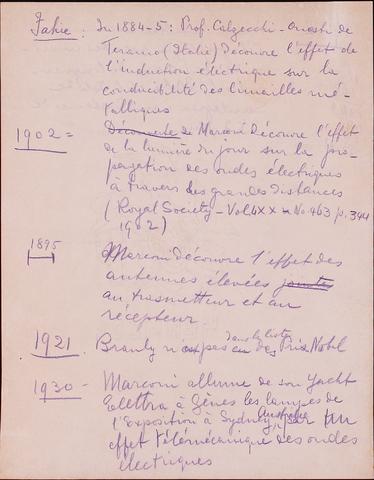 Fahie: In 1884-5: Prof. Calzecchi-Onesti de
Teramo (Italie) Découvre l'effet de
l'induction électrique sur la
conducibilité des limailles mé-
talliques
1902 = Découverte de Marconi Découvre l'effet
de la lumière du jour sur la pro-
pagation des ondes électriques
à travers des grandes distances
(Royal Society - Vol. LXX - No 463 p. 344
1902)
1895 Marconi découvre l'effet des
antennes élevées
au trasmetteur et au
récepteur.
1921. Branly n'est pas dans la liste des Prix Nobl
1930 - Marconi allume de son Yacht
Elettra à Gènes les lampes de
l'Exposition à Sydney, Australie par un
effet Télémécanique des ondes
électriques